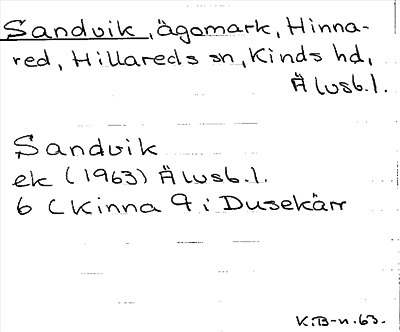 Sandvik, ägomark, Hinna-
red, Hillareds sn, Kinds hd,
Älvsb.l.
Sandvik
ek (1963) Älvsb.l.
6 (Kinna 9 i Dusekärr
K.B-n.63.